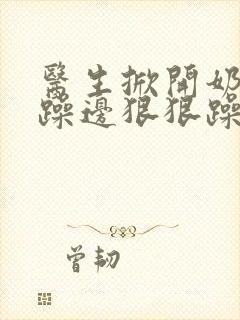 醫生掀開奶
躁邊狠狠躁
曾韧